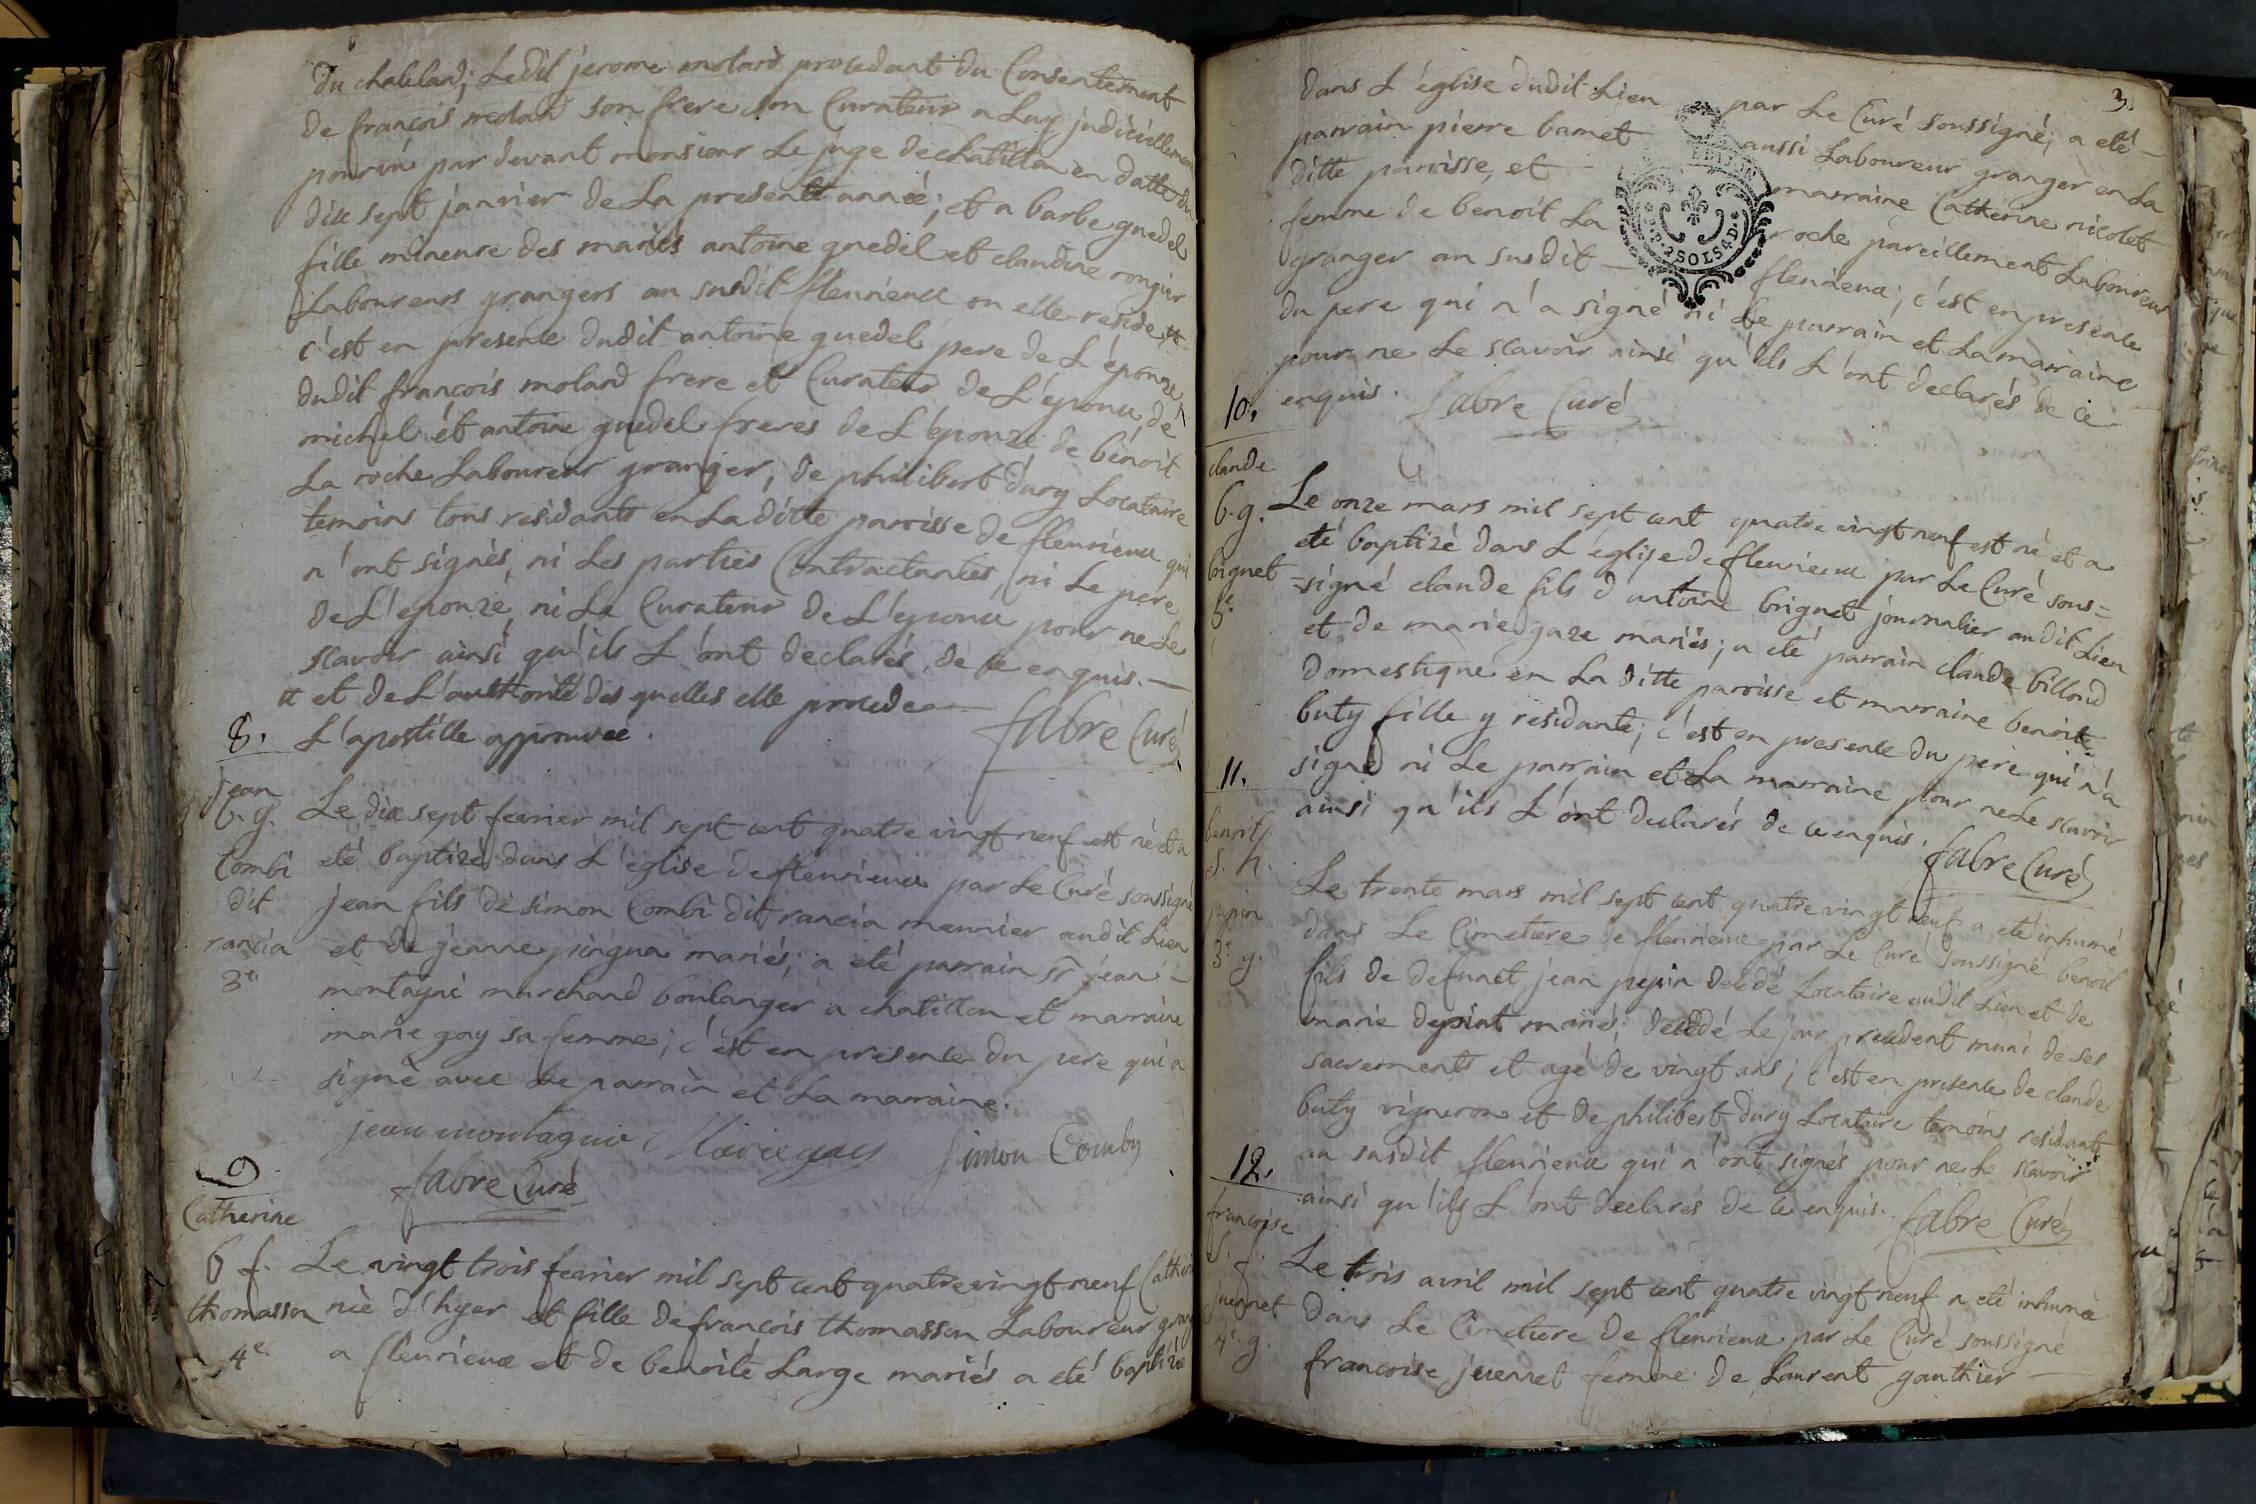 du chatelard; Ledit jerome molard procedant du Consentement
de françois molard son frere son Curateur a Luy judiciellement
pourvu par devant monsieur Le juge de chatillon en datte du
dix sept janvier de La presente année; et a barbe guedel
fille mineure des mariés antoine guedel et claudine rongier
Laboureurs grangers au susdit fleurieux ou elle reside #
c'est en presence dudit antoine guedel pere de L'épouze,
dudit françois molard frere et Curateur de L'époux, de
michel et antoine guedel freres de L'épouze, de benoit
La roche Laboureur granger, de philibert dury Locataire
temoins tous residants en La ditte parroisse de fleurieux qui
n'ont signés, ni Les parties Contractantes, ni Le pere
de L'epouze, ni Le Curateur de L'epoux pour ne Le
scavoir ainsi qu'ils L'ont declarés de ce enquis. —
# et de L'authorité des quelles elle procede —
L'apostille approuvée.
fabre Curé
8.
jean
b. g.
Combi
dit
rancia
3e
Le dix sept fevrier mil sept cent quatre vingt neuf est né et a
eté baptizé dans L'église de fleurieux par Le Curé soussigné
jean fils de simon Combi dit rancia meunier audit Lieu
et de jeanne pingua mariés; a eté parrain sr jean —
montagné marchand boulanger a chatillon et marraine
marie gay sa femme; c'est en presence du pere qui a
signé avec Le parrain et La marraine.
jean montagnie Marie gay Simon Comby
fabre Curé
9
Catherine
b f.
thomasson
4e
Le vingt trois fevrier mil sept cent quatre vingt neuf
née d'hyer et fille de françois thomasson Laboureur
a fleurieux et de benoite Large mariés a eté baptizée
3.
dans L'église dudit Lieu par Le Curé soussigné; a eté —
parrain pierre bamet aussi Laboureur granger en La
ditte parroisse, et — marraine Catherine nicolet
femme de benoit La roche pareillement Laboureur
granger au susdit — fleurieux; c'est en presence
du pere qui n'a signé ni Le parrain et La marraine
pour ne Le scavoir ainsi qu'ils L'ont declarés de ce
enquis. fabre Curé
2SOLS4D
10.
claude
b. g.
brignet
5e
Le onze mars mil sept cent quatre vingt neuf est né et a
eté baptizé dans L'église de fleurieux par Le Curé sous=
=signé claude fils d'antoine brignet journalier audit Lieu
et de marie gaze mariés; a eté parrain claude billoud
domestique en La ditte parroisse et marraine benoite
buty fille y residante; c'est en presence du pere qui n'a
signé ni Le parrain et La marraine pour ne Le scavoir
ainsi qu'ils L'ont declarés de ce enquis.
fabre Curé
11.
benoit
s. h.
pepin
3e g.
Le trente mars mil sept cent quatre vingt neuf a eté inhumé
dans Le Cimetiere de fleurieux par Le Curé soussigné benoit
fils de defunct jean pepin decedé Locataire audit Lieu et de
marie depiat mariés; decedé Le jour precedent muni de ses
sacrements et agé de vingt ans; c'est en presence de claude
buty vigneron et de philibert dury Locataire temoins residants
au susdit fleurieux qui n'ont signés pour ne Le scavoir
ainsi qu'ils L'ont declarés de ce enquis. fabre Curé
12.
françoise
s. f.
juennet
4e g.
Le trois avril mil sept cent quatre vingt neuf a eté inhumée
dans Le Cimetiere de fleurieux par Le Curé soussigné
françoise juennet femme de Laurent gauthier —